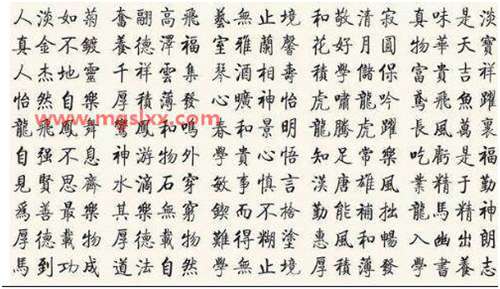 人淡如菊 奮翮高飛 藝無止境 和敬清寂 真味是淡
真金不鍍 養德澤福 室雅蘭馨 花好月圓 物華天寶
人杰地靈 千祥雲集 琴酒相壽 積學儲保 富貴吉祥
怡然自樂 厚積薄發 心曠神怡 虎嘯龍吟 鳶飛魚躍
龍飛鳳舞 鸞鳳和鳴 春和景明 龍騰虎躍 長風萬裏
自强不息 神游物外 學貴心悟 知足常樂 吃虧是福
見賢思齊 水滴石穿 敏事慎言 漢唐雄風 業精于勤
爲善最樂 其樂無窮 鍥而不捨 勤能補拙 龍馬精神
厚德載物 厚德載物 難得糊塗 惠風和暢 入幽出朗
馬到功成 道法自然 學無止境 厚積薄發 學書養志